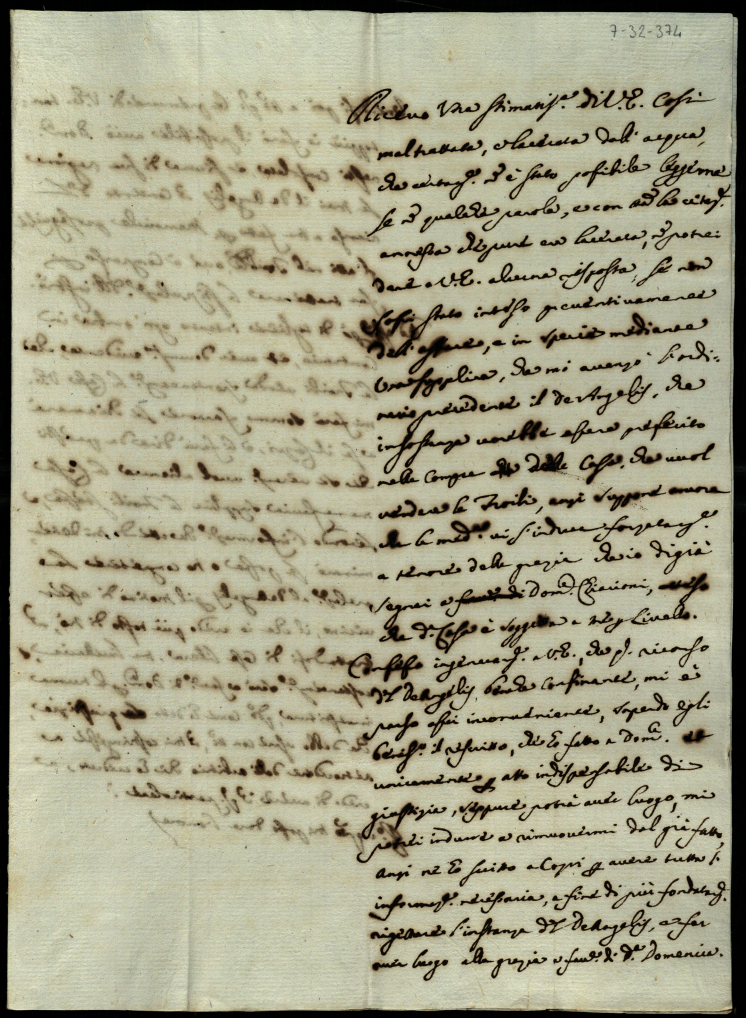 7-32-374
Ricevo Una stimatis.ª di V.E. Così
maltrattata, e lacerata dall'acqua,
che certam.e nõ è stato possibile leggerne
se nõ qualche parola, e con
annessa che pure era lacerata, nõ potrei
dare a V.E. alcuna risposta, se non
fossi stato inteso preventivamente
dell'affare, e in specie mediante
Una supplica, che mi avanzò l'ordi-
nario precedente il De Angelis, che
in sostanza vorrebbe essere preferito
nella compra delle Case, che vuol
vendere la Troili, anzi suppone ancora
che la med.ª vi s'induca forzatam.e
a tenore della grazia che io di già
segnai a Dom.ca Chiarioni,
che d.ª Casa è soggetta a Livello.
Confesso ingenuam.e a V.E., che p. ricorso
del De Angelis, benche confinante, mi è
parso assai inconveniente, sapendo egli
beniss.º il rescritto, che ho fatto a Dom.ca
unicamente p atto indispensabile di
giustizia, seppure potrà aver luogo, mi
potrei indurre a rimuovermi dal già fatto,
anzi ne ho scritto a Capri p avere tutte l'
informaz.i necessarie, a fine di più fondatam.e
rigettare l'instanza del De Angelis, e far
aver luogo alla grazia a fav.e di d.ª Domenica.